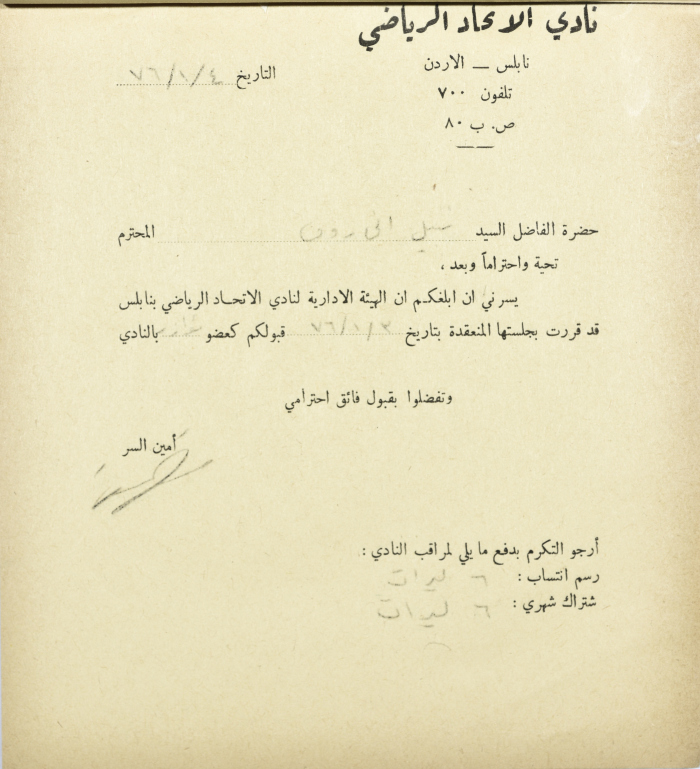 نادي الاتحاد الرياضي
نابلس — الاردن
تلفون ٧٠٠
ص. ب ٨٠
التاريخ ٧٦/١/٤
حضرة الفاضل السيد المحترم
تحية واحتراماً وبعد ،
يسرني ان ابلغكم ان الهيئة الادارية لنادي الاتحاد الرياضي بنابلس
قد قررت بجلستها المنعقدة بتاريخ ٧٦/١/٣ قبولكم كعضو بالنادي
وتفضلوا بقبول فائق احترامي
أمين السر
أرجو التكرم بدفع ما يلي لمراقب النادي :
رسم انتساب : ٦ ليرات
شتراك شهري : ٦ ليرات